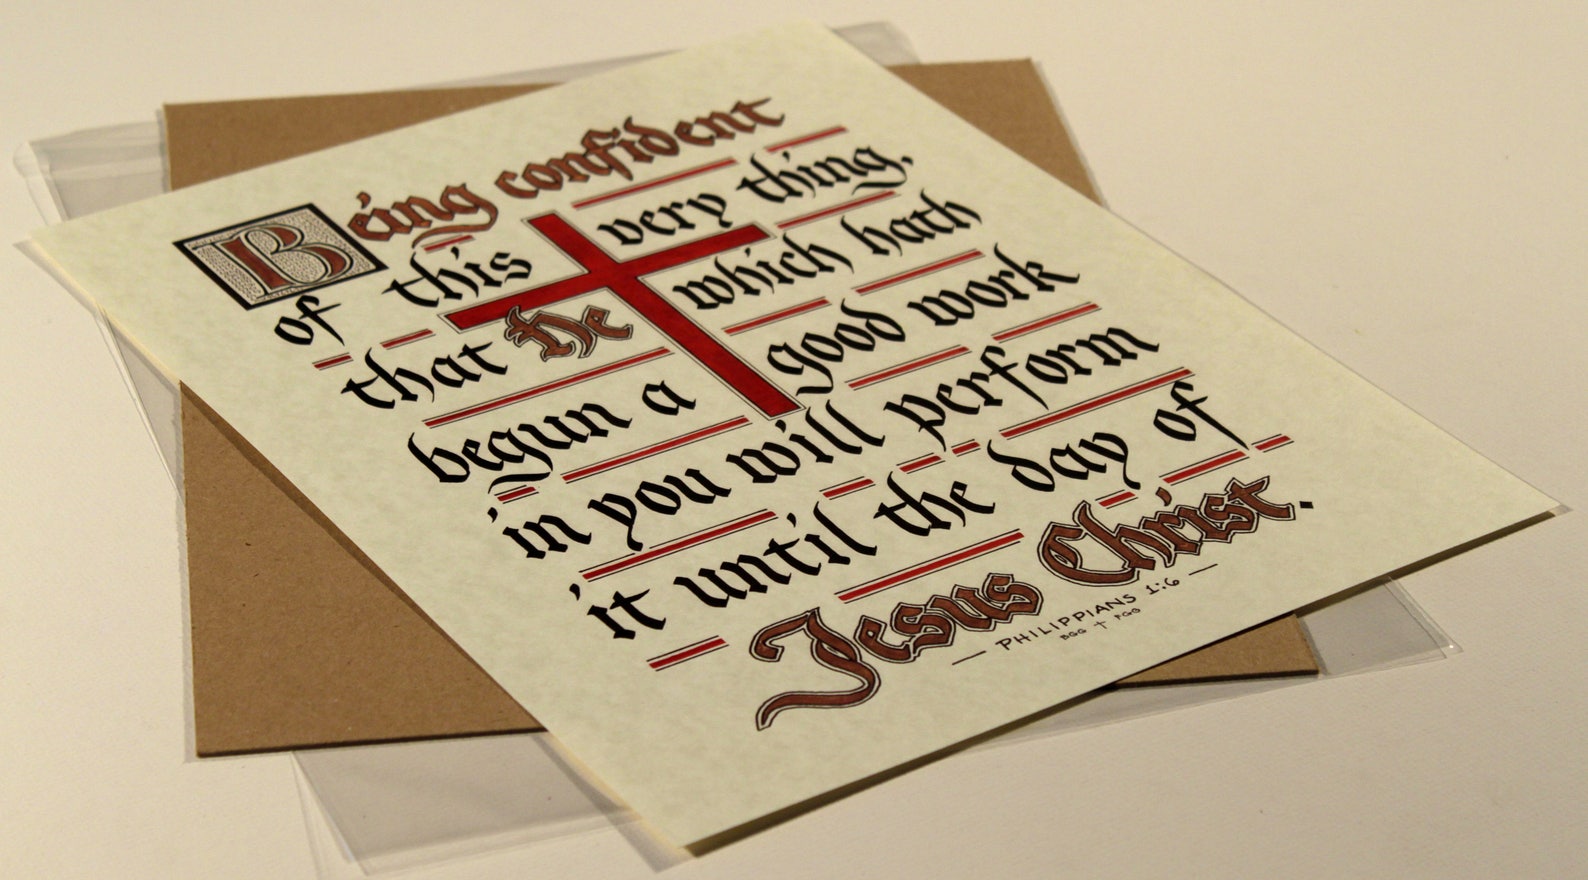 Being confident
of this very thing,
that He which hath
begun a good work
in you will perform
it until the day of
Jesus Christ.
— PHILIPPIANS 1:6 —
BGG † PGG